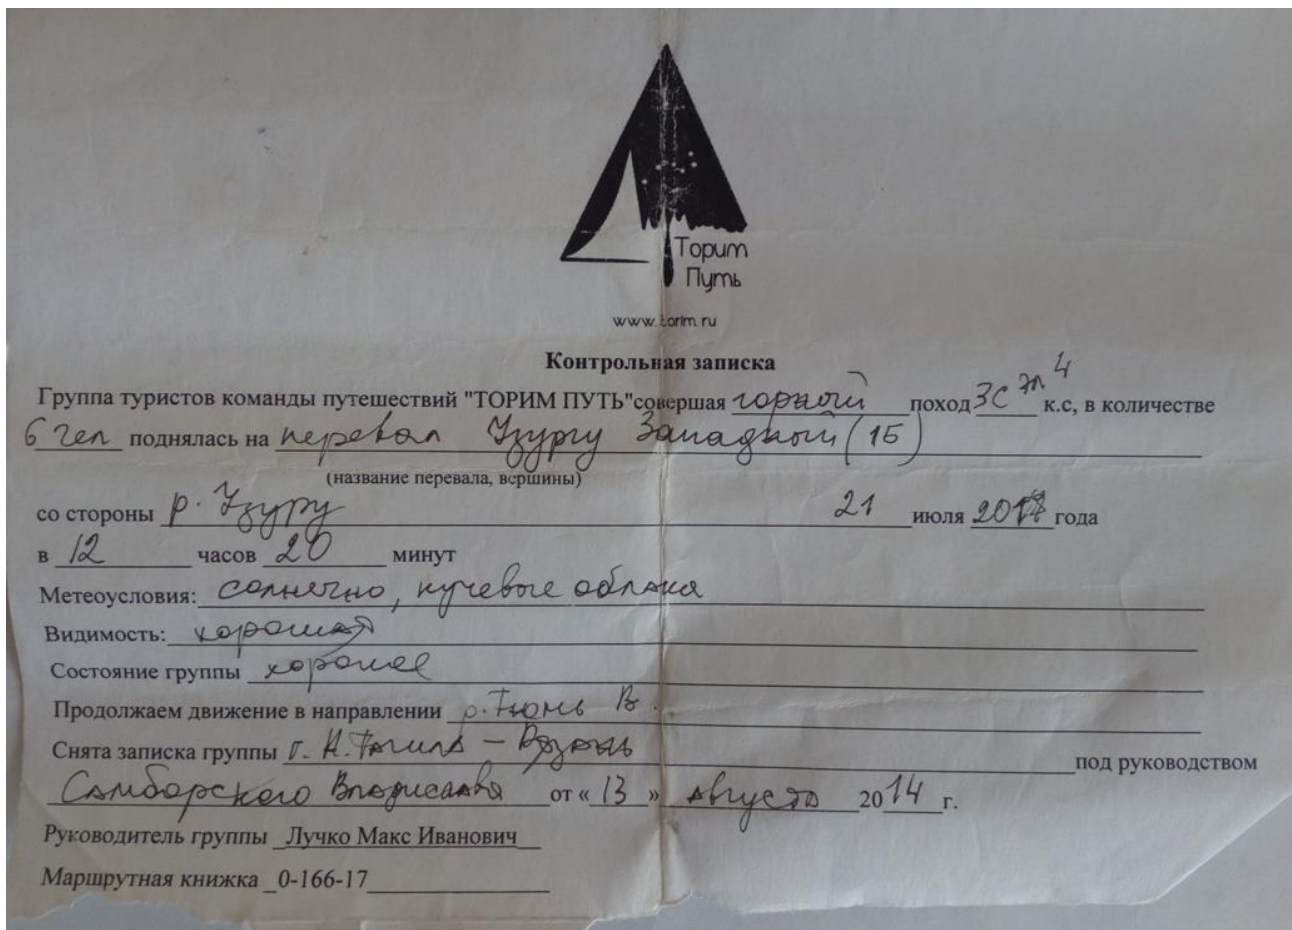 Торит
Путь
www.torim.ru
Контрольная записка
Группа туристов команды путешествий "ТОРИМ ПУТЬ"совершая горный поход 3С эл 4 к.с, в количестве
6 чел поднялась на перевал Узургу Западный (1Б)
(название перевала, вершины)
со стороны р. Узуру 21 июля 2017 года
в 12 часов 20 минут
Метеоусловия: солнечно, кучевые облака
Видимость: хорошая
Состояние группы хорошее
Продолжаем движение в направлении р. Тюнь В.
Снята записка группы г. Н.Тагила – Рязань под руководством
Самборского Владислава от « 13 » августа 2014 г.
Руководитель группы Лучко Макс Иванович
Маршрутная книжка 0-166-17